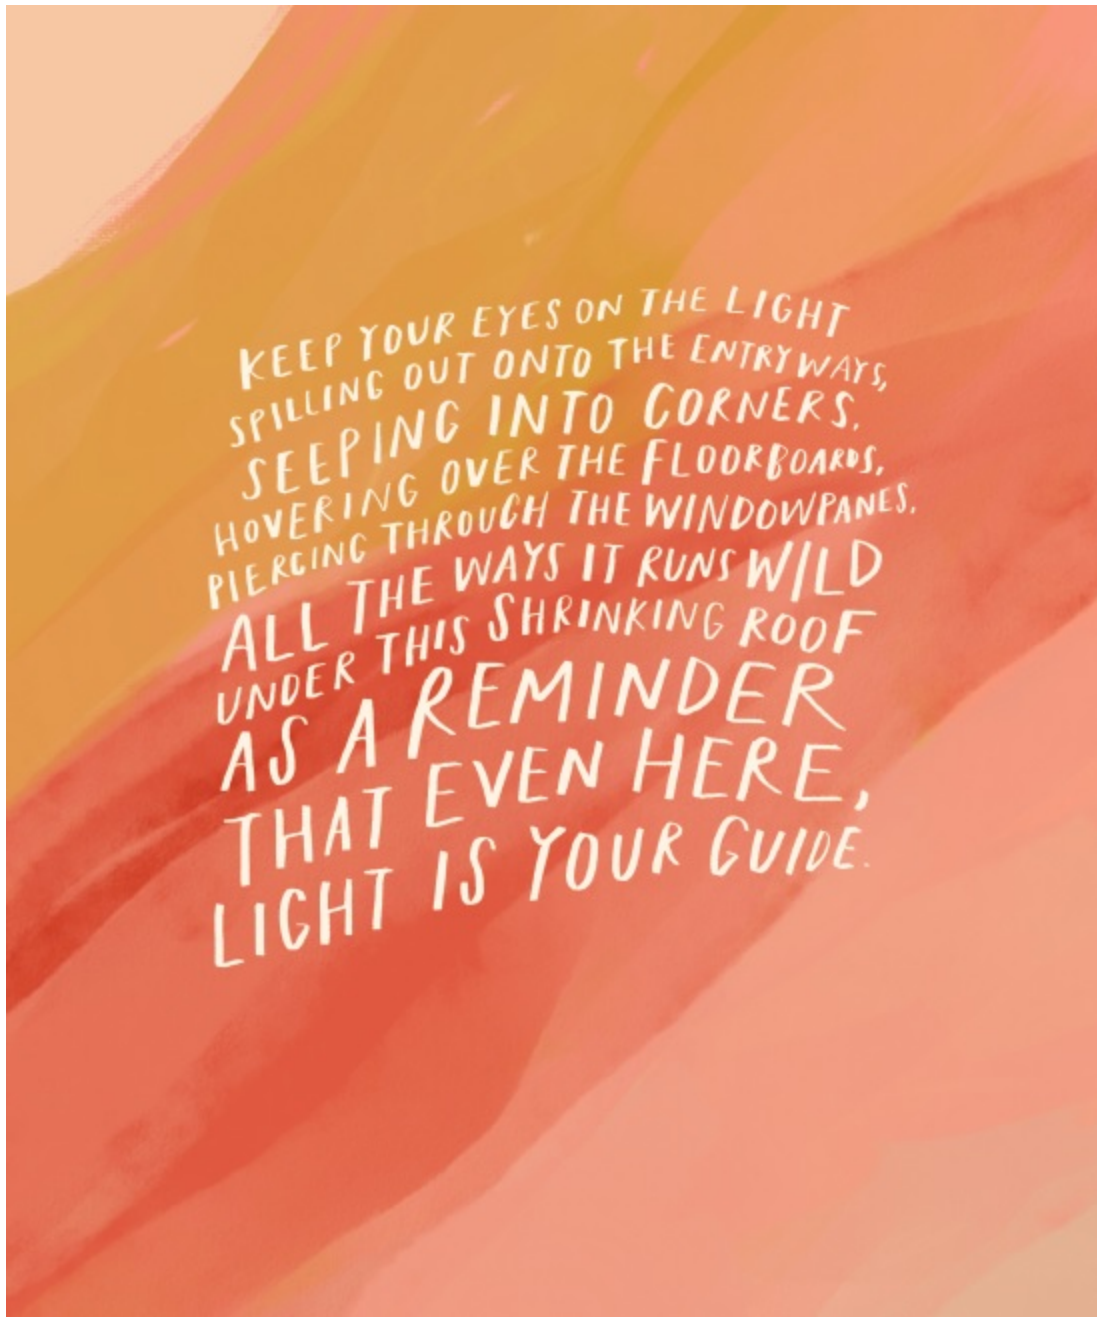 KEEP YOUR EYES ON THE LIGHT
SPILLING OUT ONTO THE ENTRYWAYS,
SEEPING INTO CORNERS,
HOVERING OVER THE FLOORBOARDS,
PIERCING THROUGH THE WINDOWPANES,
ALL THE WAYS IT RUNS WILD
UNDER THIS SHRINKING ROOF
AS A REMINDER
THAT EVEN HERE,
LIGHT IS YOUR GUIDE.